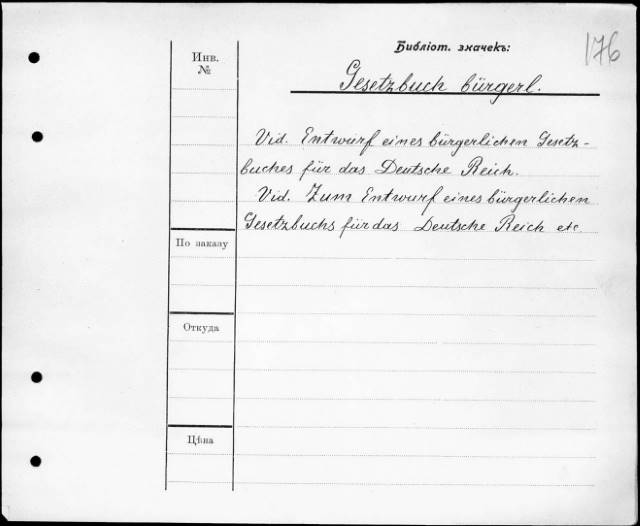 Библіот. значекъ:
176
Инв.
№
Gesetzbuch bürgerl.
Vid. Entwurf eines bürgerlichen Gesetz-
buches für das Deutsche Reich.
Vid. Zum Entwurf eines bürgerlichen
Gesetzbuchs für das Deutsche Reich etc.
По заказу
Откуда
Цѣна